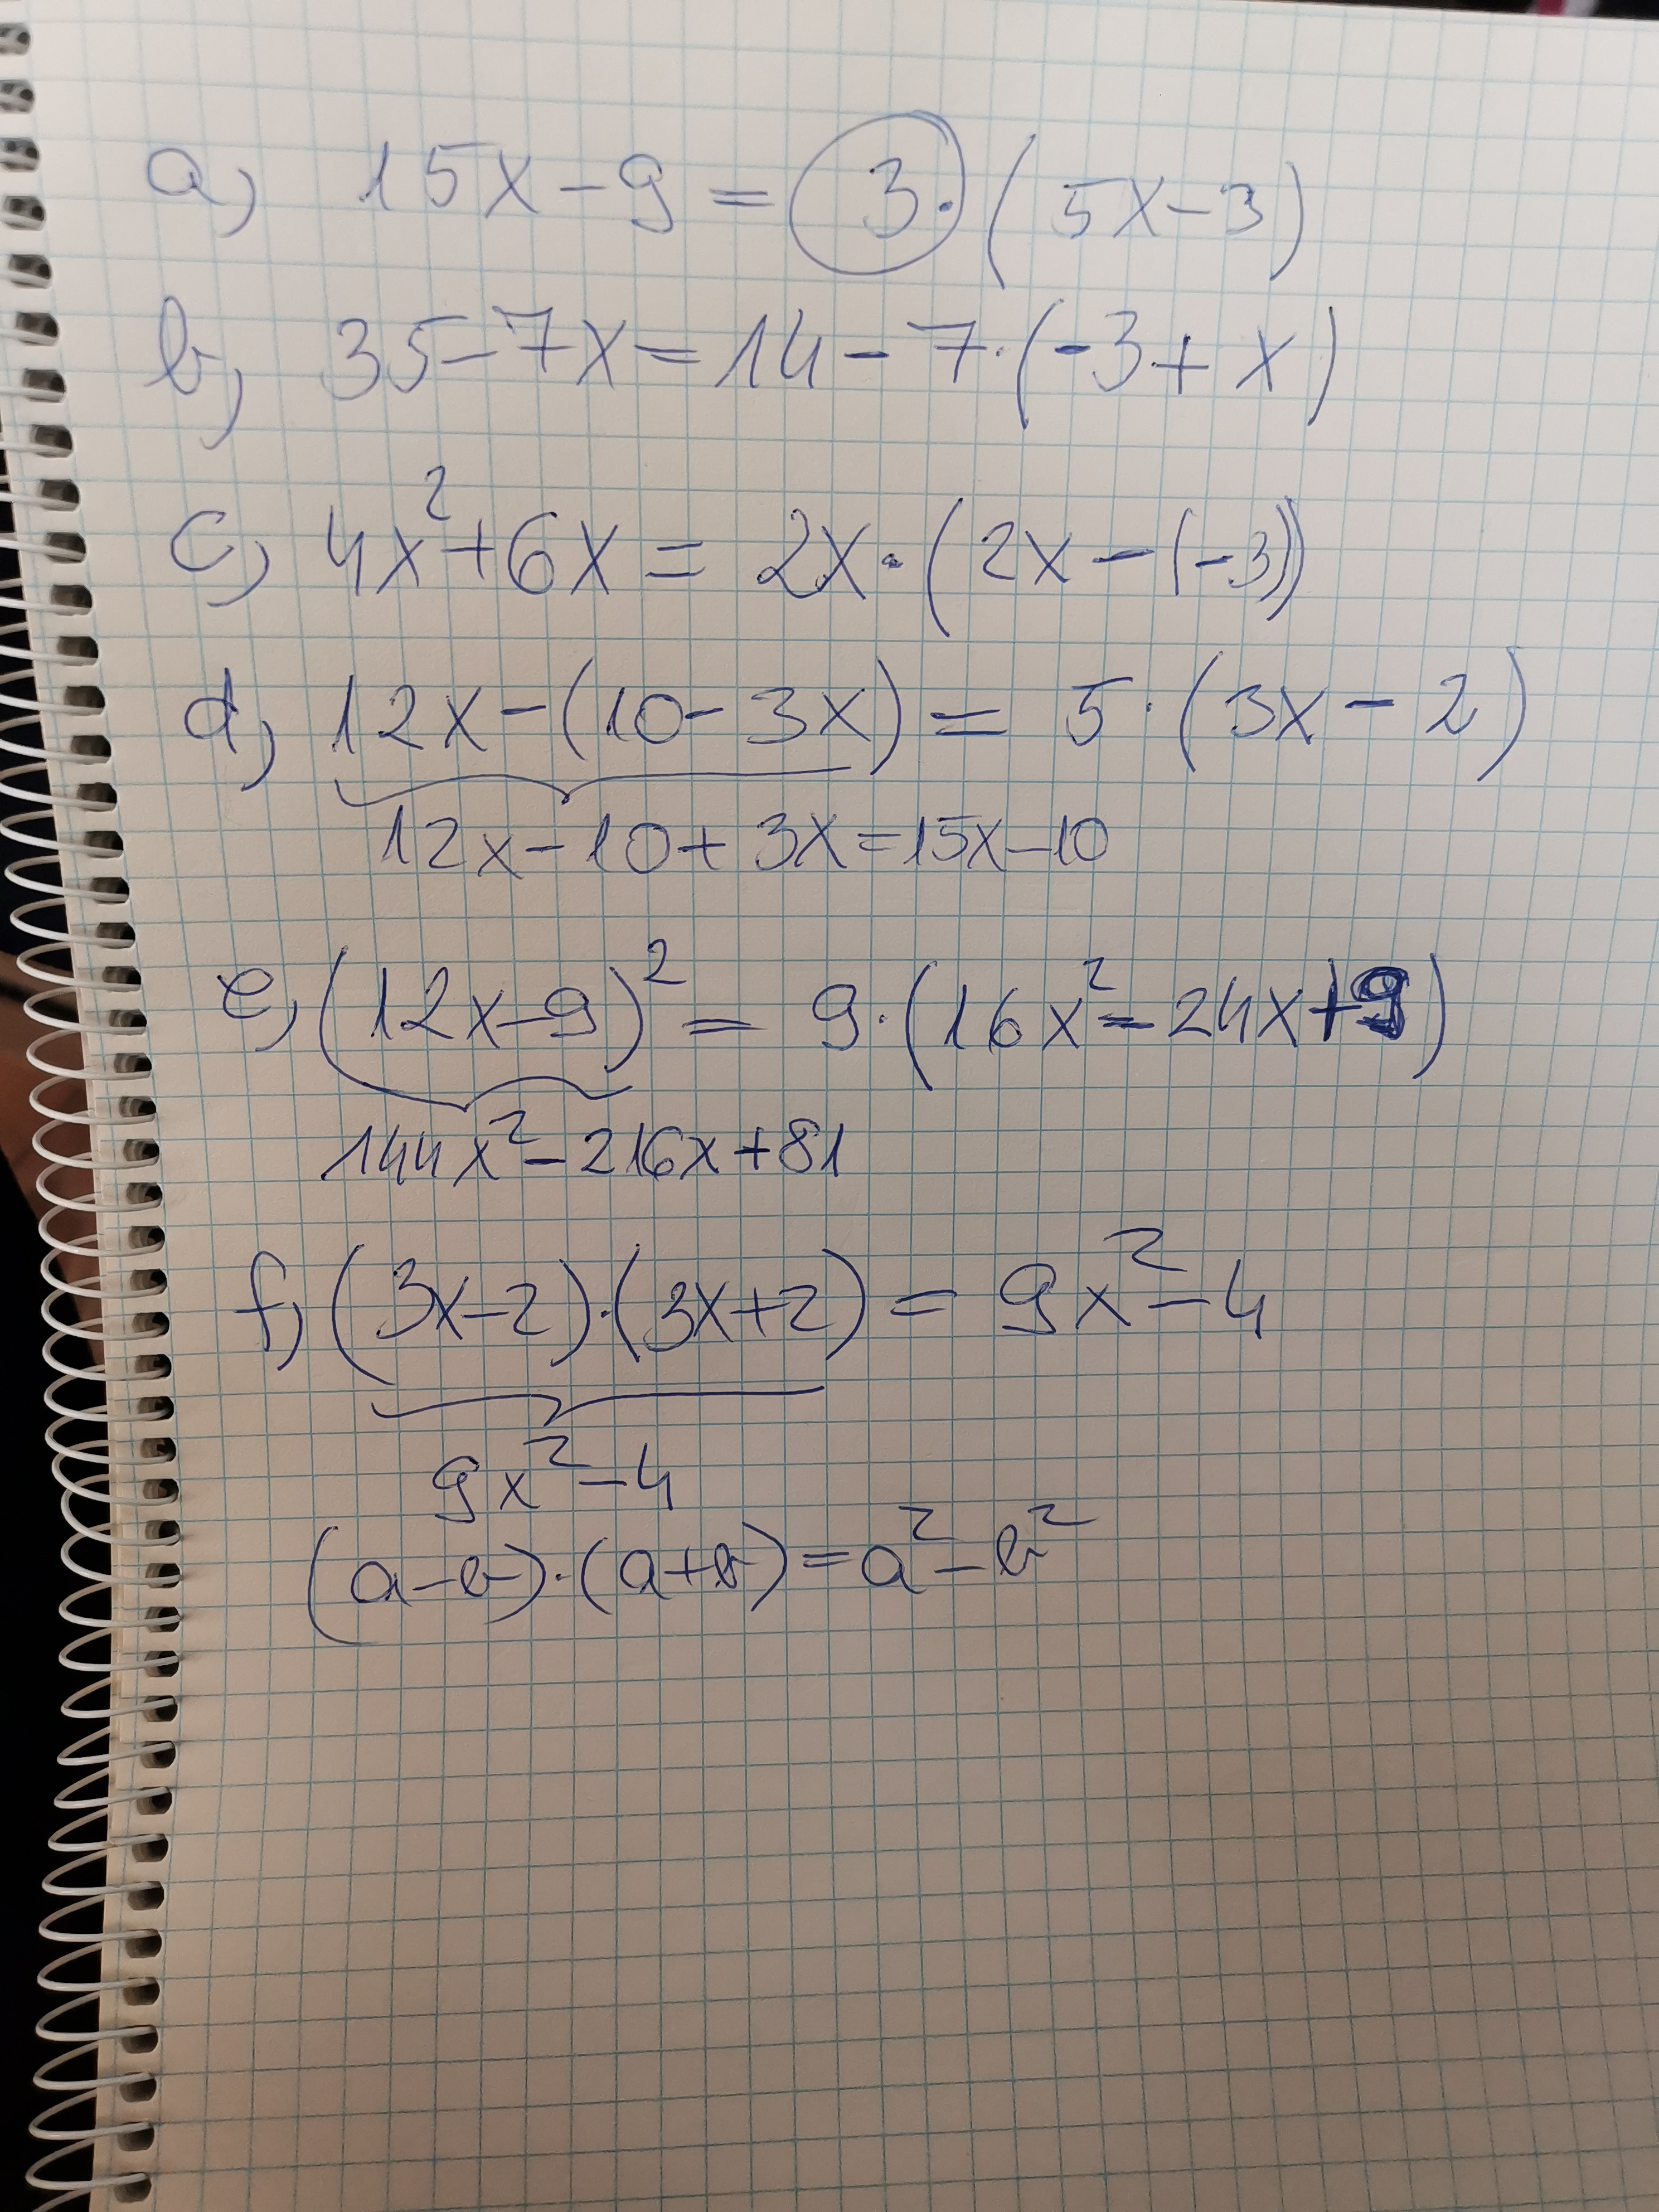 a) 15x-9 = 3·(5x-3)
b) 35-7x = 14-7·(-3+x)
c) 4x²+6x = 2x·(2x-(-3))
d) 12x-(10-3x) = 5·(3x-2)
12x-10+3x=15x-10
e) (12x-9)² = 9·(16x²-24x+9)
144x²-216x+81
f) (3x-2)·(3x+2) = 9x²-4
9x²-4
(a-b)·(a+b)=a²-b²